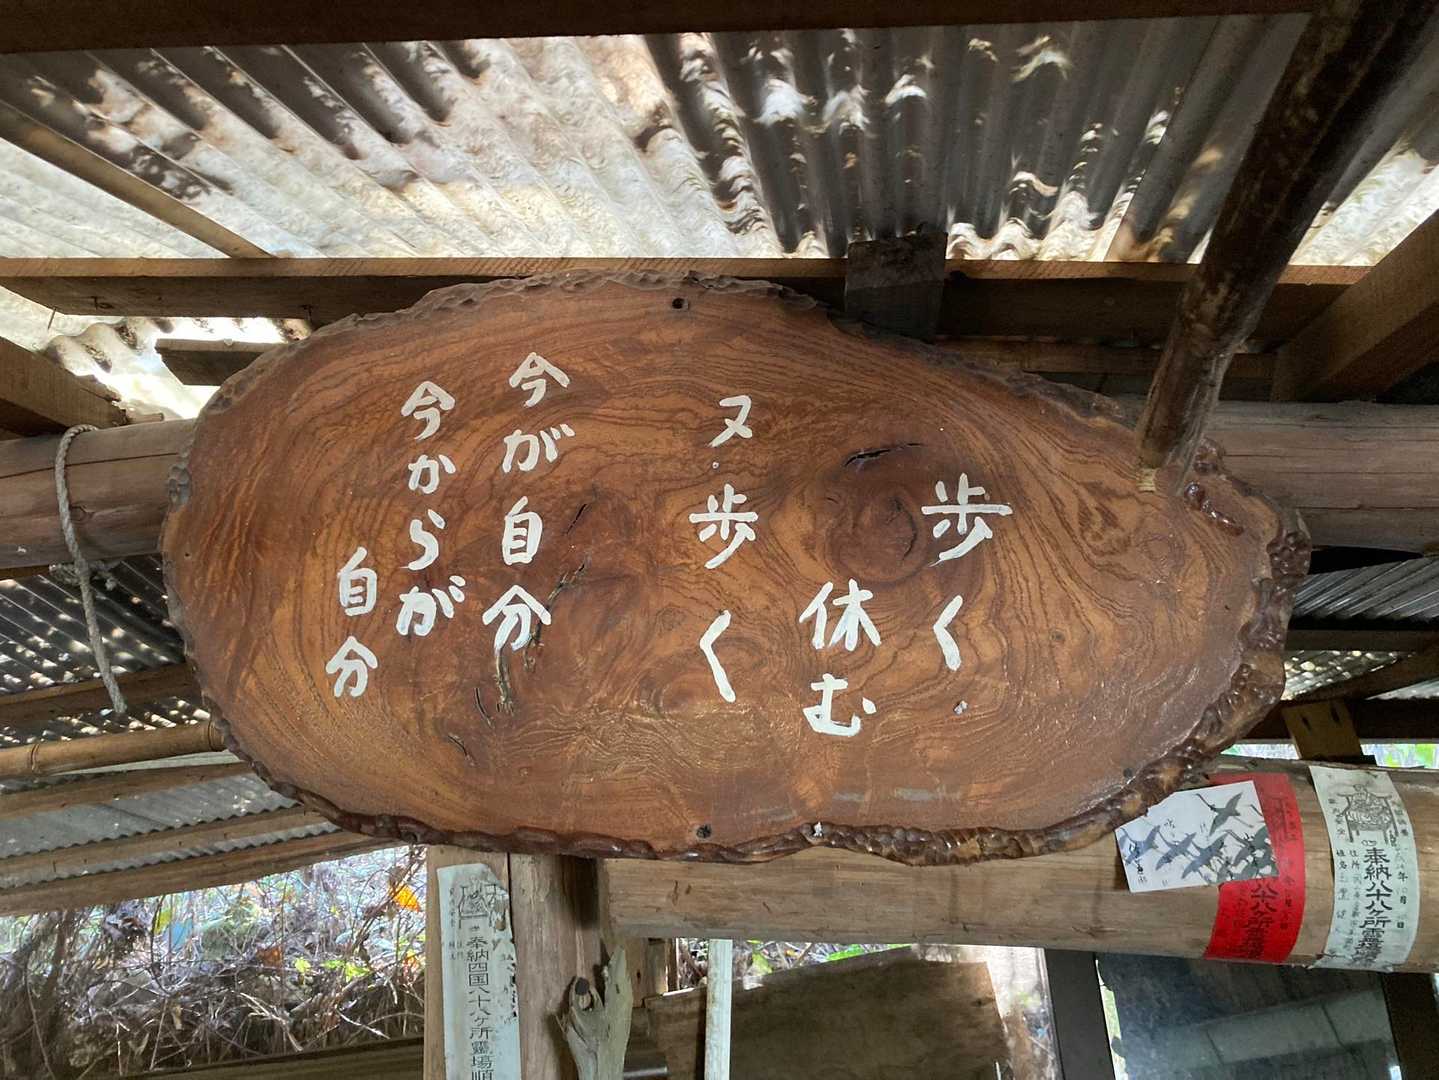 歩く
休む
又歩く
今が自分
今からが
自分
奉納八十八ヶ所霊
奉納四国八十八ヶ所霊場順